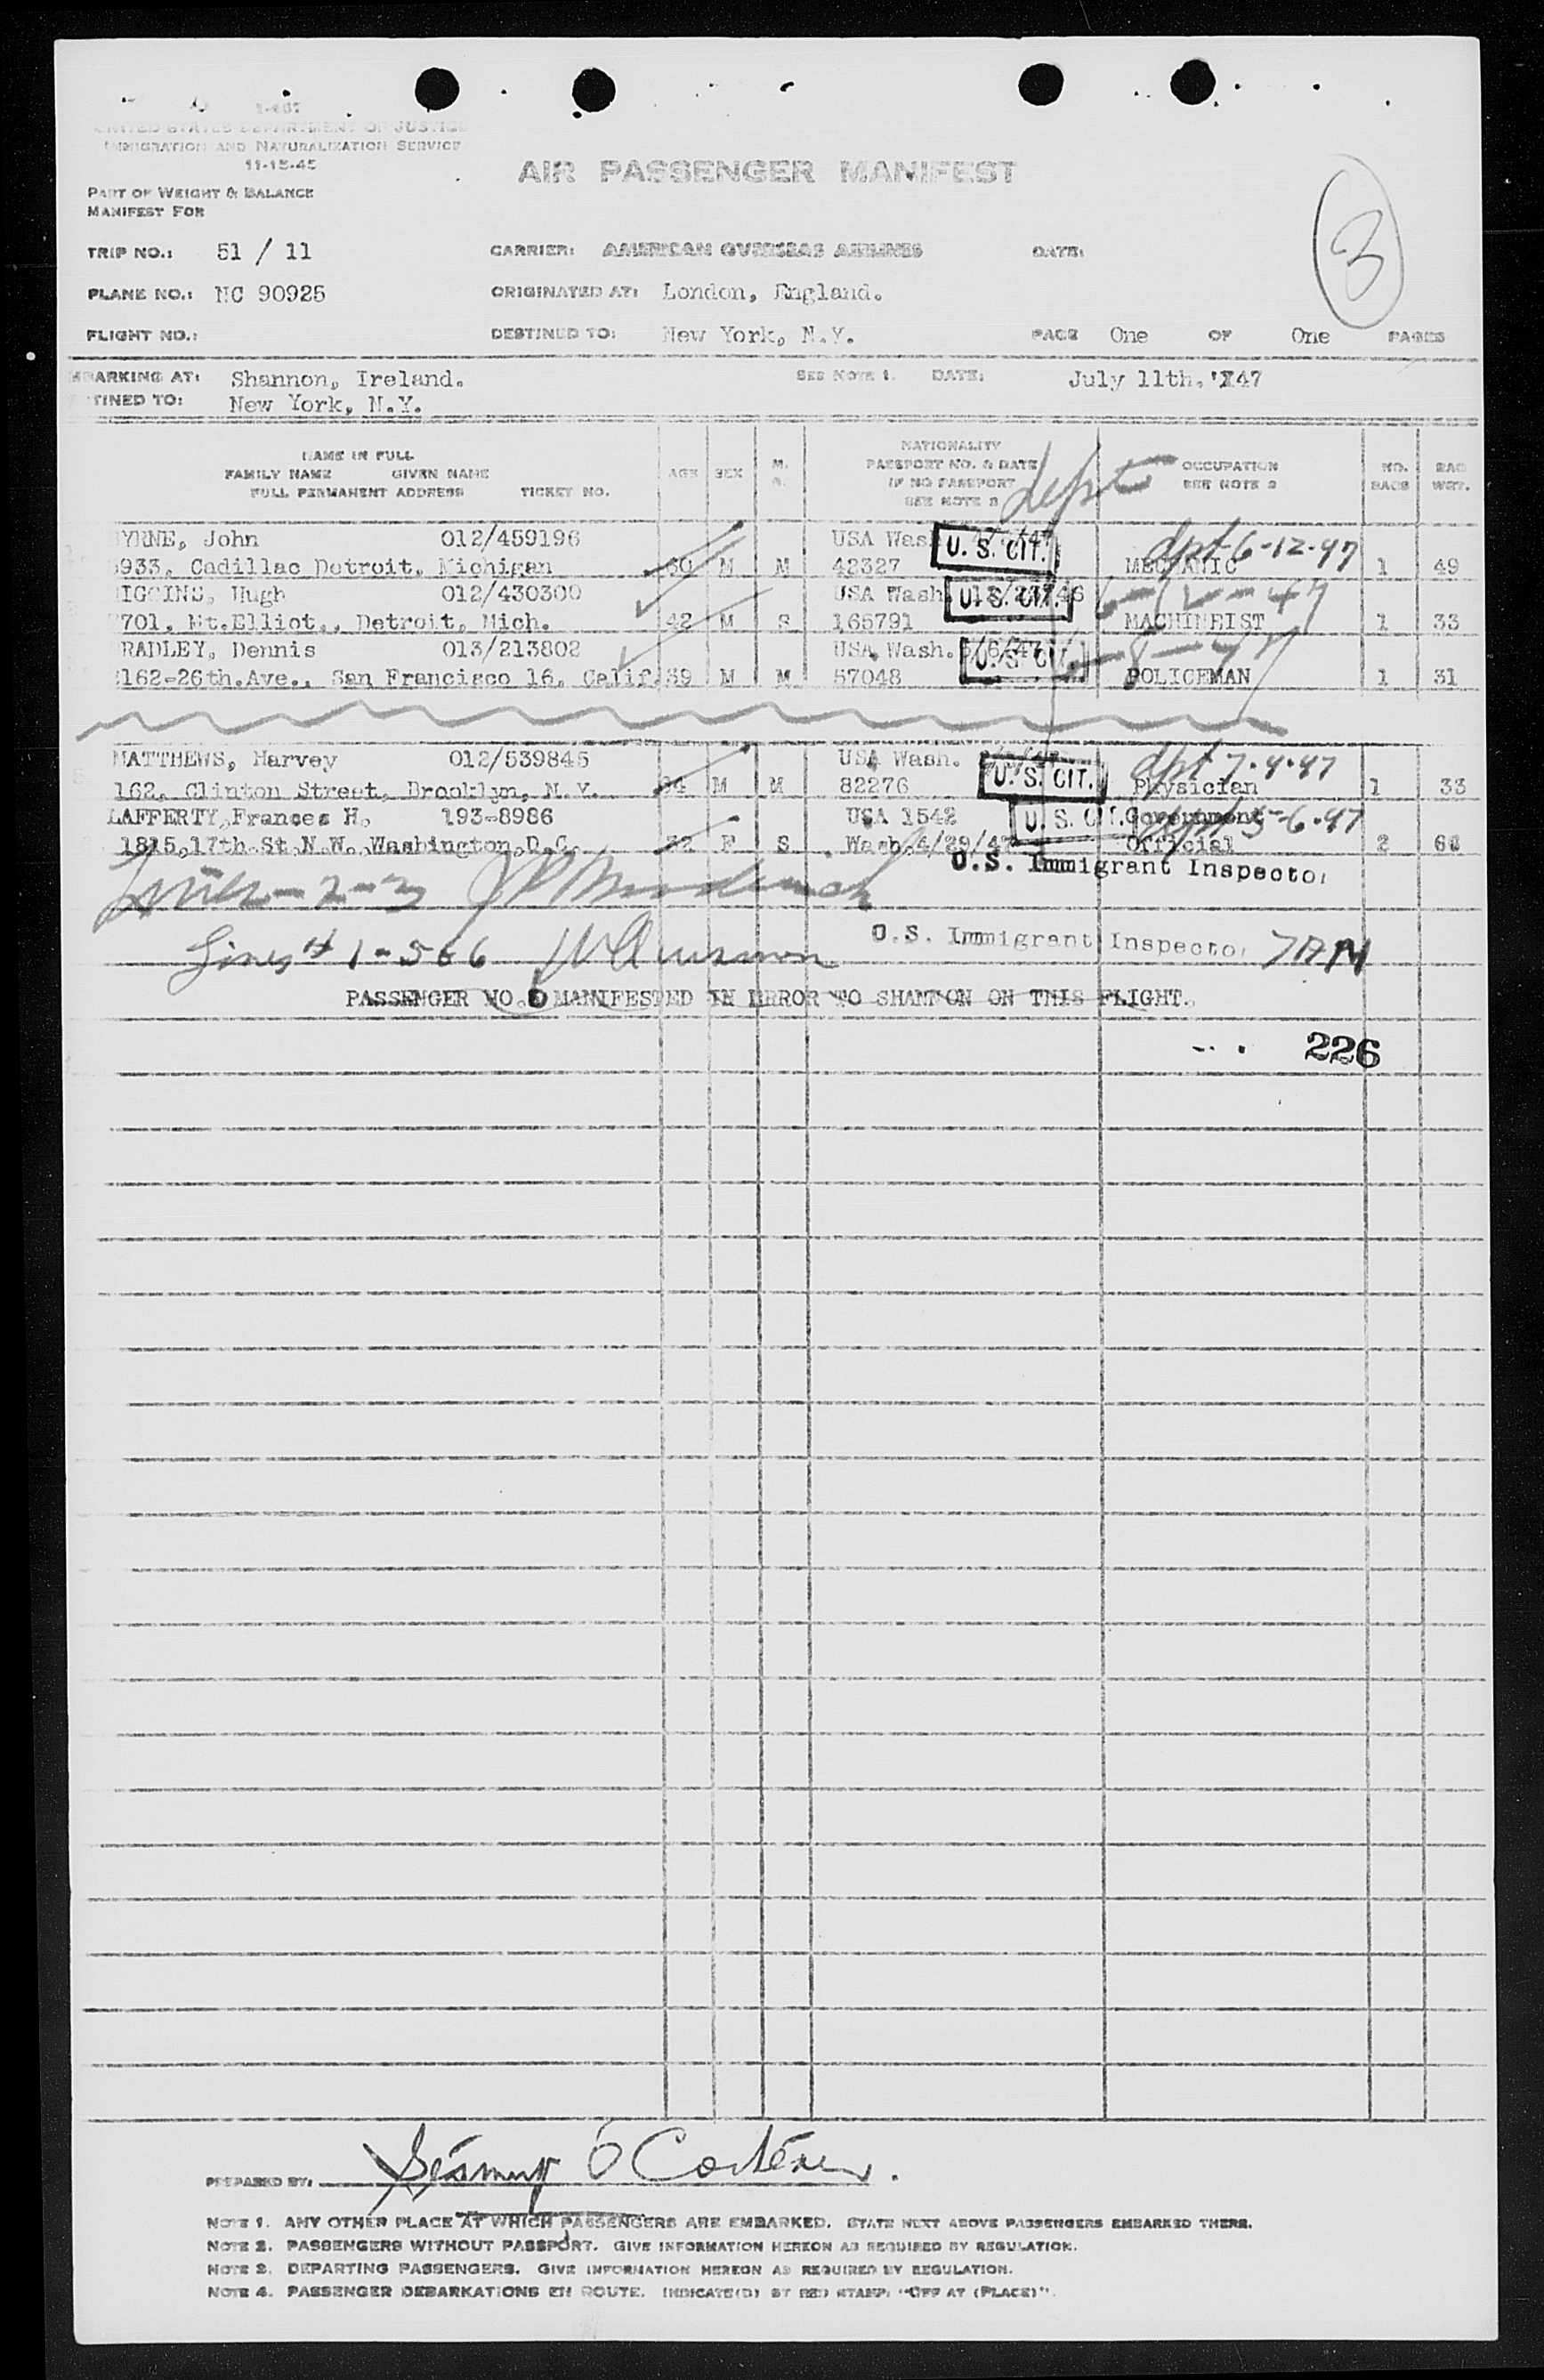 1-467
UNITED STATES DEPARTMENT OF JUSTICE
IMMIGRATION AND NATURALIZATION SERVICE
11-15-45
AIR PASSENGER MANIFEST
PART OF WEIGHT & BALANCE
MANIFEST FOR
3
TRIP NO.: 51 / 11 CARRIER: AMERICAN OVERSEAS AIRLINES DATE:
PLANE NO.: NC 90925 ORIGINATED AT: London, England.
FLIGHT NO.: DESTINED TO: New York, N.Y. PAGE One OF One PAGES
MBARKING AT: Shannon, Ireland. SEE NOTE 1. DATE: July 11th.'47
TINED TO: New York, N.Y.
NAME IN FULL
FAMILY NAME GIVEN NAME
FULL PERMANENT ADDRESS TICKET NO.
AGE SEX M. S.
NATIONALITY
PASSPORT NO. & DATE
IF NO PASSPORT
SEE NOTE 2
dept
OCCUPATION
SEE NOTE 3
NO. BAGS
BAG WGT.
YRNE, John 012/459196 USA Wash U. S. CIT. dpt 6-12-47
933, Cadillac Detroit, Michigan 30 M M 42327 MECHANIC 1 49
IGGINS, Hugh 012/430300 USA Wash U. S. CIT. 6-12-47
701, Mt.Elliot., Detroit, Mich. 42 M S 165791 MACHINEIST 1 33
RADLEY, Dennis 013/213802 USA Wash. U. S. CIT. -8-47
162-26th.Ave., San Francisco 16, Calif. 39 M M 57048 POLICEMAN 1 31
MATTHEWS, Harvey 012/539845 USA Wash. dpt 7.4.47
162, Clinton Street, Brooklyn, N.Y. 34 M M 82276 U. S. CIT. Physician 1 33
LAFFERTY,Frances H, 193-8986 USA 1542 U. S. CIT. Government 5-6-47
1815,17th.St.N.W.,Washington,D.C. 32 F S Wash.4/29/47 Official 2 66
U.S. Immigrant Inspector
Lines - 2-3
U.S. Immigrant Inspector
Lines # 1-5&6
PASSENGER NO. 5 MANIFESTED IN ERROR TO SHANNON ON THIS FLIGHT.
226
PREPARED BY:
NOTE 1. ANY OTHER PLACE AT WHICH PASSENGERS ARE EMBARKED. STATE NEXT ABOVE PASSENGERS EMBARKED THERE.
NOTE 2. PASSENGERS WITHOUT PASSPORT. GIVE INFORMATION HEREON AS REQUIRED BY REGULATION.
NOTE 3. DEPARTING PASSENGERS. GIVE INFORMATION HEREON AS REQUIRED BY REGULATION.
NOTE 4. PASSENGER DEBARKATIONS EN ROUTE. INDICATE(D) BY RED STAMP: "OFF AT (PLACE)".